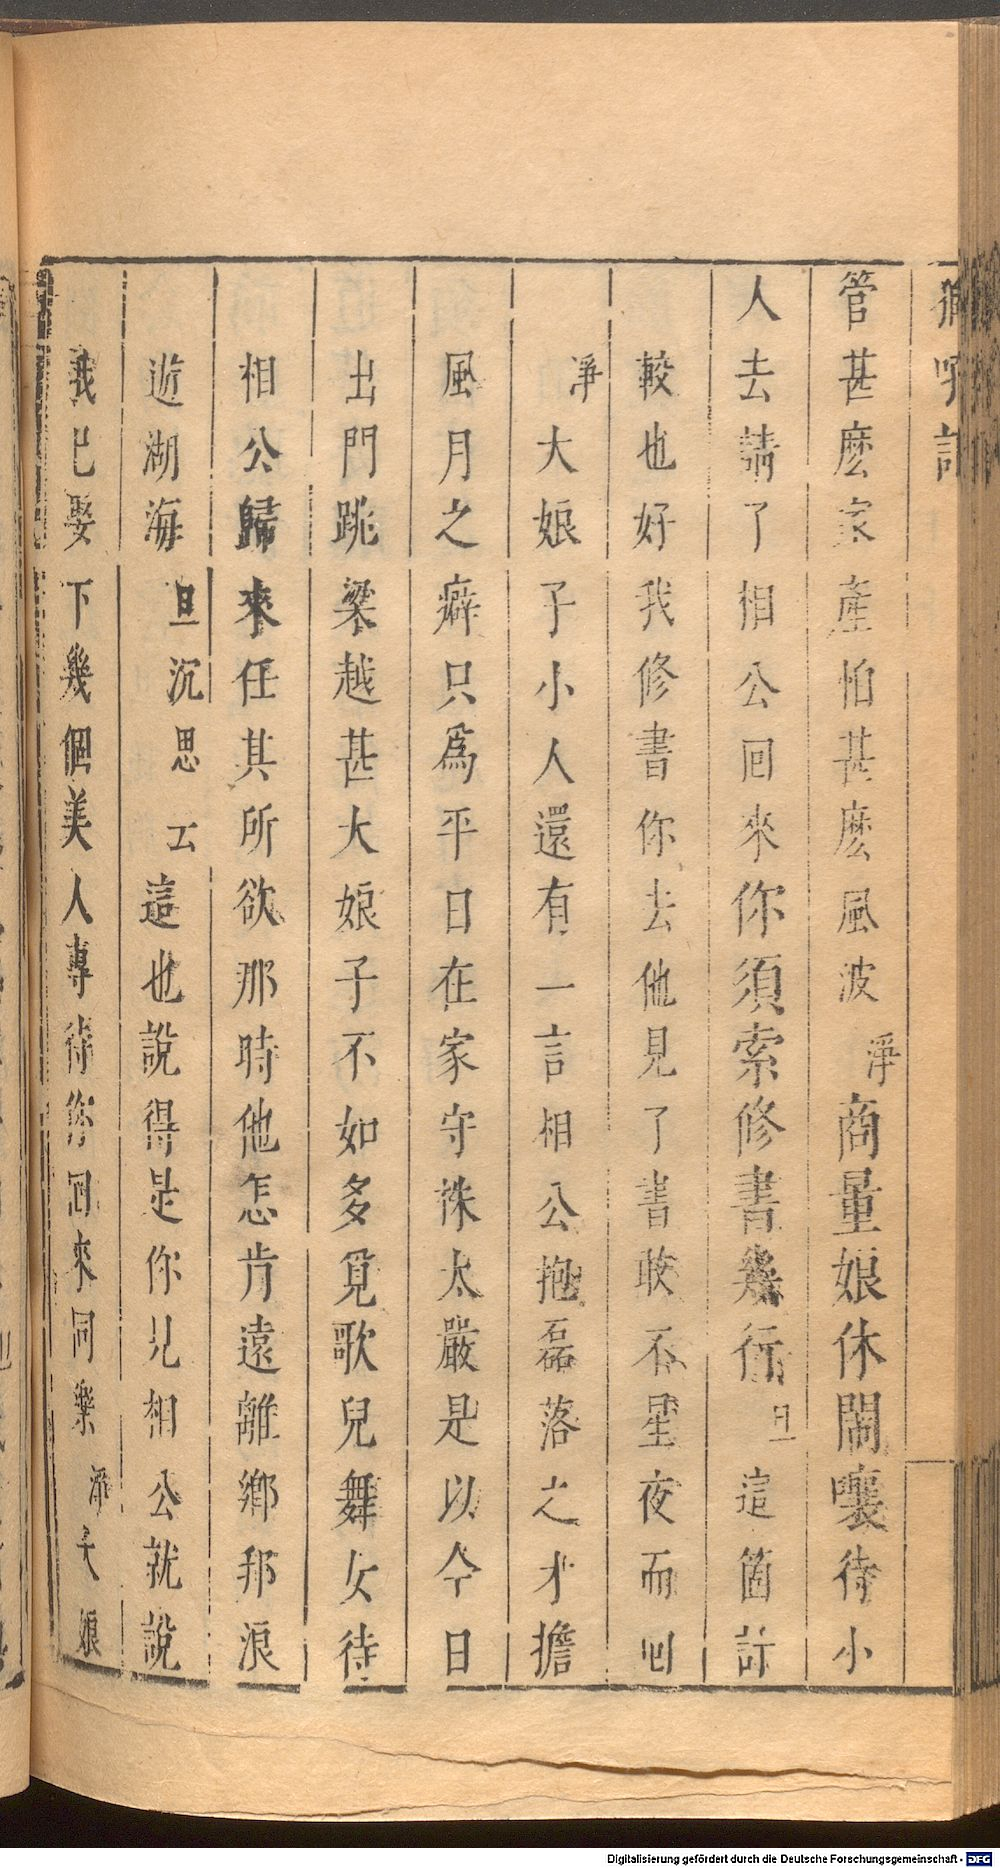 獅吼記
管甚麽家產怕甚麽風波淨商量娘休鬧嚷待小
人去請了相公回來你須索修書幾行旦這箇計
較也好我修書你去他見了書敢不星夜而回
淨大娘子小人還有一言相公抱磊落之才擔
風月之癖只爲平日在家守株太嚴是以今日
出門跳梁越甚大娘子不如多覓歌兒舞女待
相公歸來任其所欲那時他怎肯遠離鄉邦浪
遊湖海旦沉思云這也說得是你見相公就說
我已娶下幾個美人專待你回來同樂淨大娘
Digitalisierung gefördert durch die Deutsche Forschungsgemeinschaft - DFG